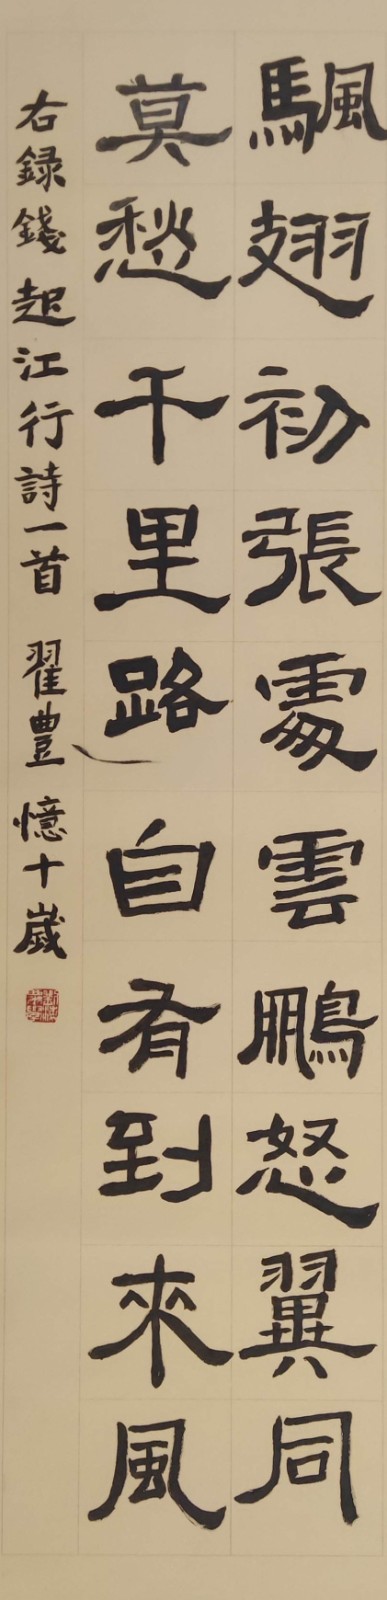 颿翅初張處雲鵬怒翼同
莫愁千里路自有到來風
右録錢起江行詩一首 翟豊憶十嵗